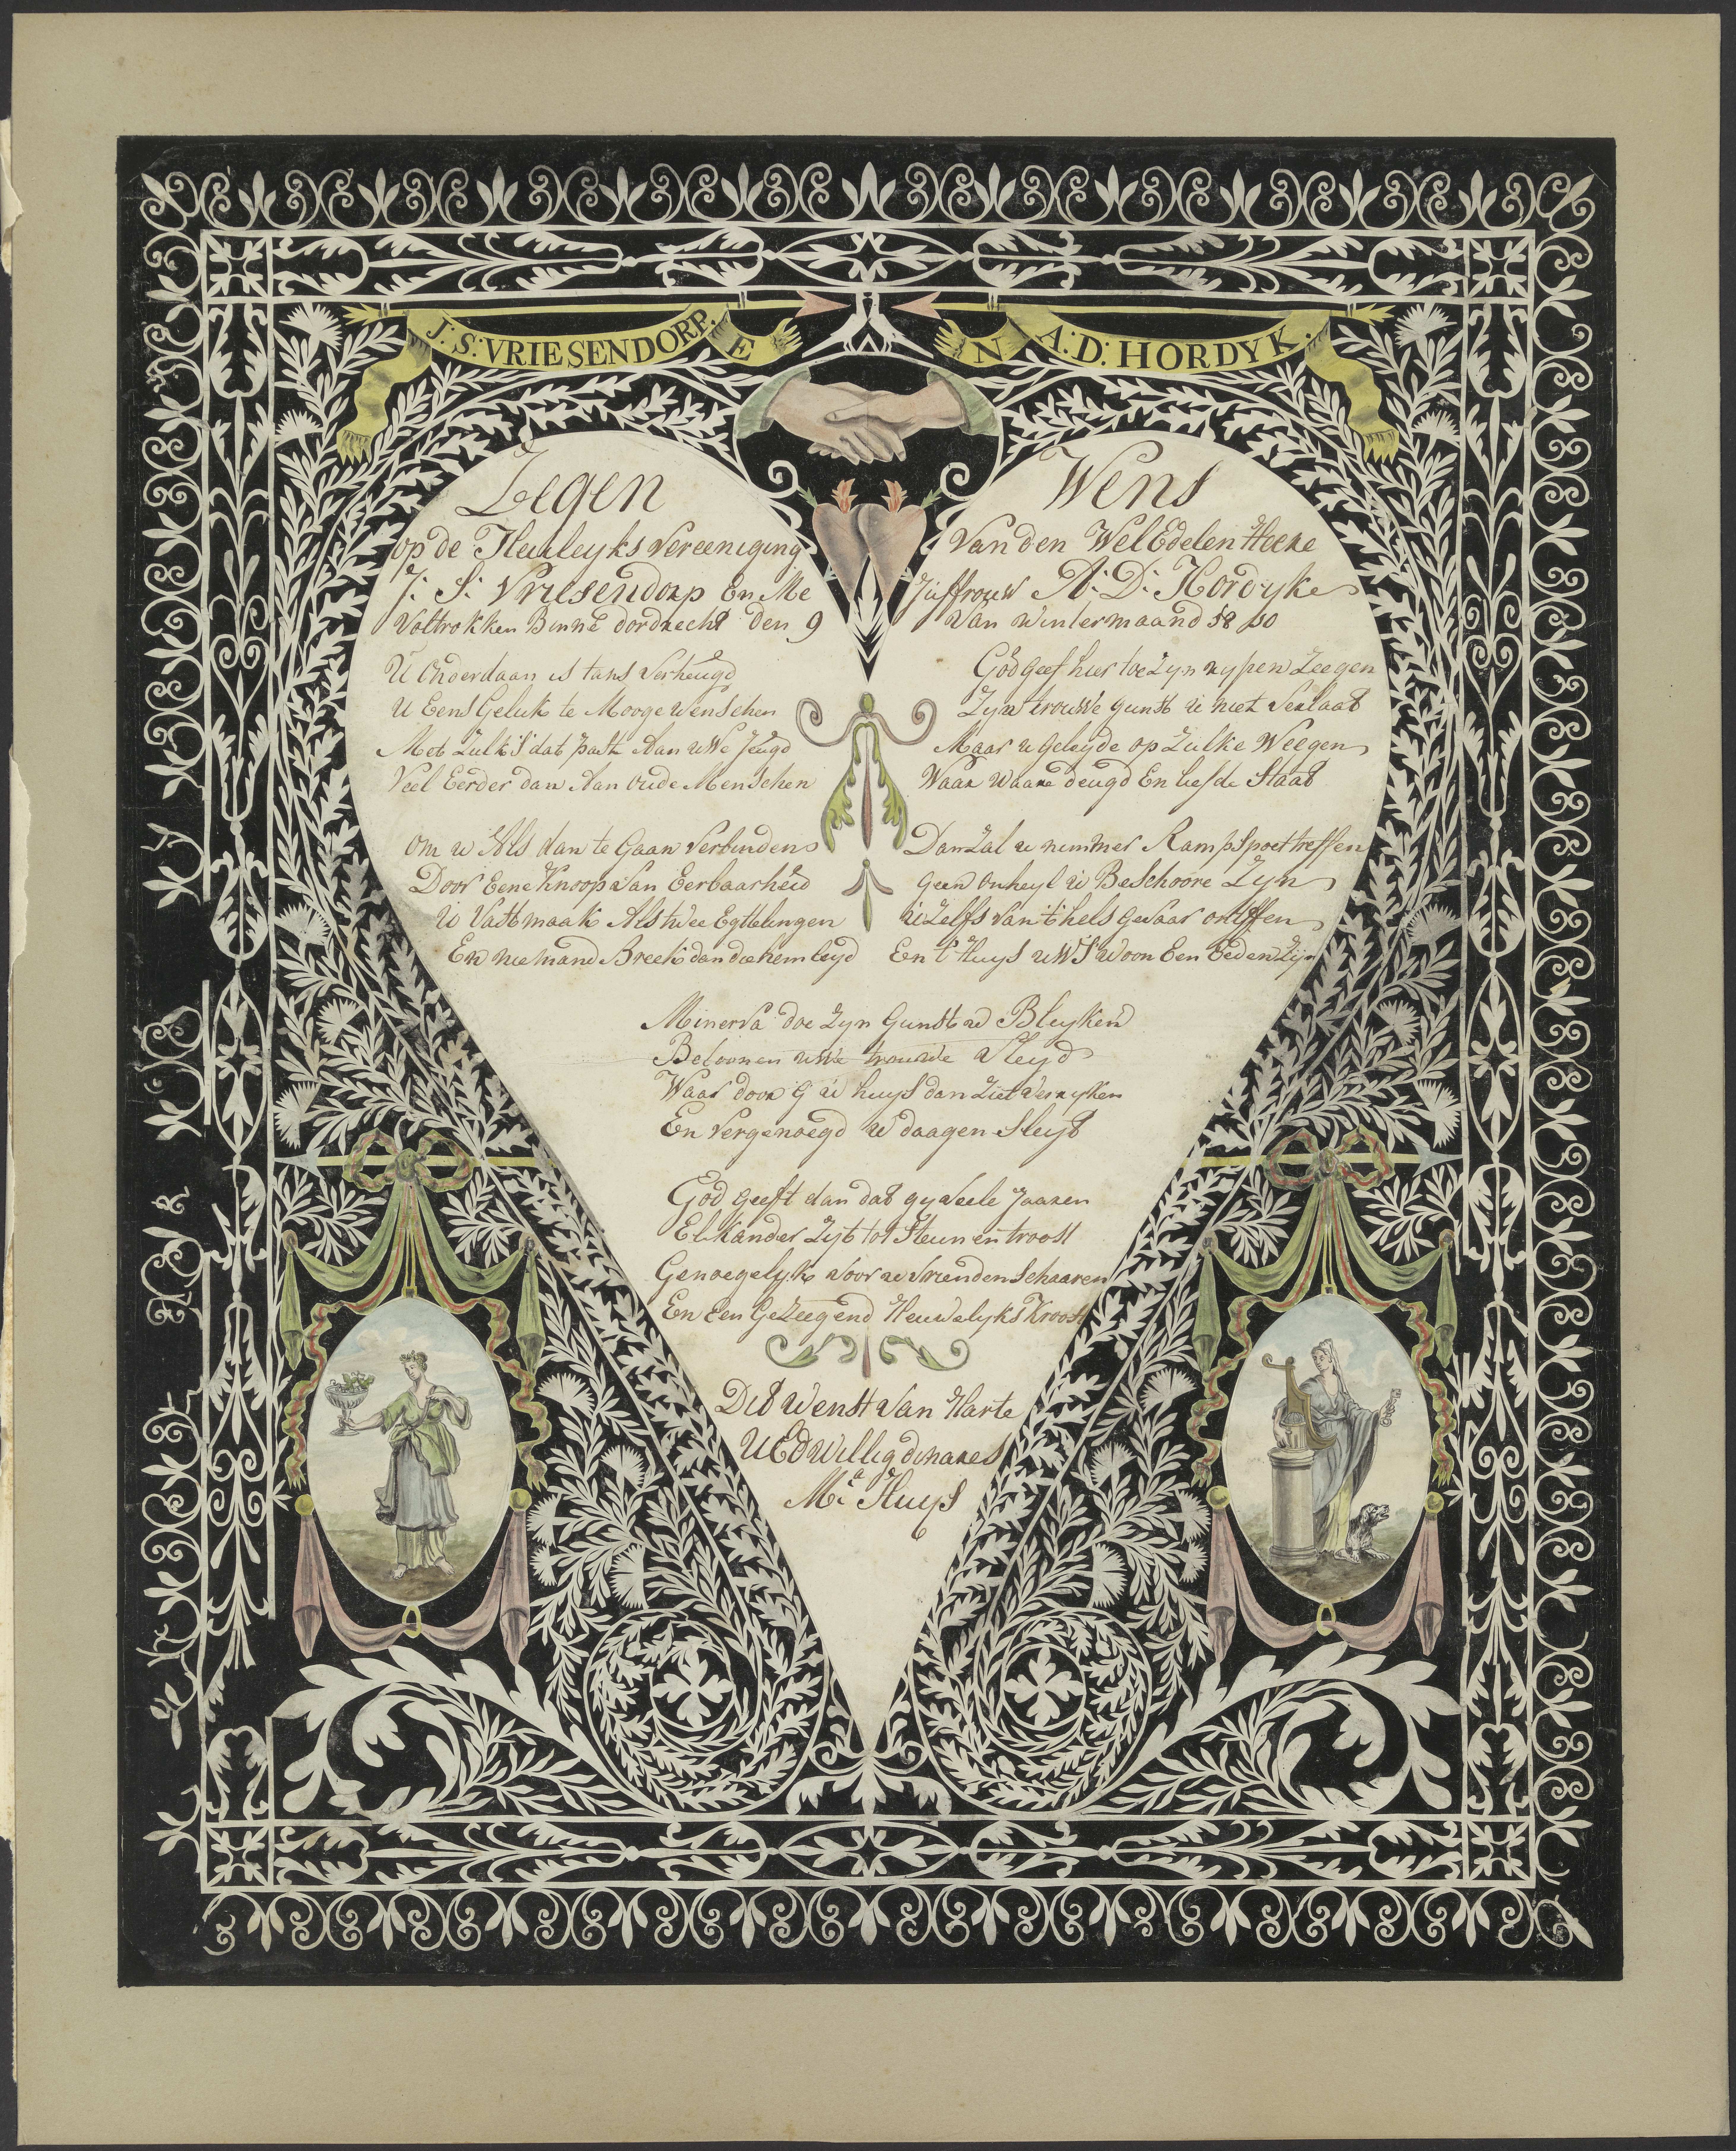 J: S: VRIESENDORP. E N A: D: HORDYK.
Zegen Wens
op de Huuleyks Vereeniging Van den Wel Edelen Heere
J: S: Vriesendorp En Me Juffrouw A: D: Hordyke
Voltrokken Binne dordrecht den 9 Van Wintermaand 1810
U Onderdaan is tans Verheugd
U Eens Geluk te Mooge Wenschen
Met Zulk S dat past Aan uWe Jeugd
Veel Eerder dan Aan Oude Menschen
Om u Als dan te Gaan Verbinden
Door Eene Knoop Van Eerbaarheid
U Vast maak Als twee Egttelingen
En niemand Breek dan die hem leyd
God Geef hier toe Zyn rypen Zeegen
Zyn trouWe gunst u niet Verlaat
Maar u Geleyde op Zulke Weegen
Waar Waare deugd En liefde Staat
Dan Zal u nimmer Rampspoet treffen
Geen Onheyl U BeSchoore Zyn
U Zelfs Van t hels gevaar ontffen
En t Huys uWS Woon Een Eeden Zyn
Minerva doe Zyn Gunst u Bleyken
Beloonen uWe trouwe Vleyd
Waar door G u huys dan Ziet Verryken
En Vergenoegd u daagen Sleyt
God Geeft dan dat gy Veele Jaaren
Elkander Zyt tot Steun en troost
Genoegelyk Voor u Vrienden Schaaren
En Een GeZeegend Heuwelyks Kroost
Dit Wenst Van Harte
UED Willig dinares
Ma: Huys